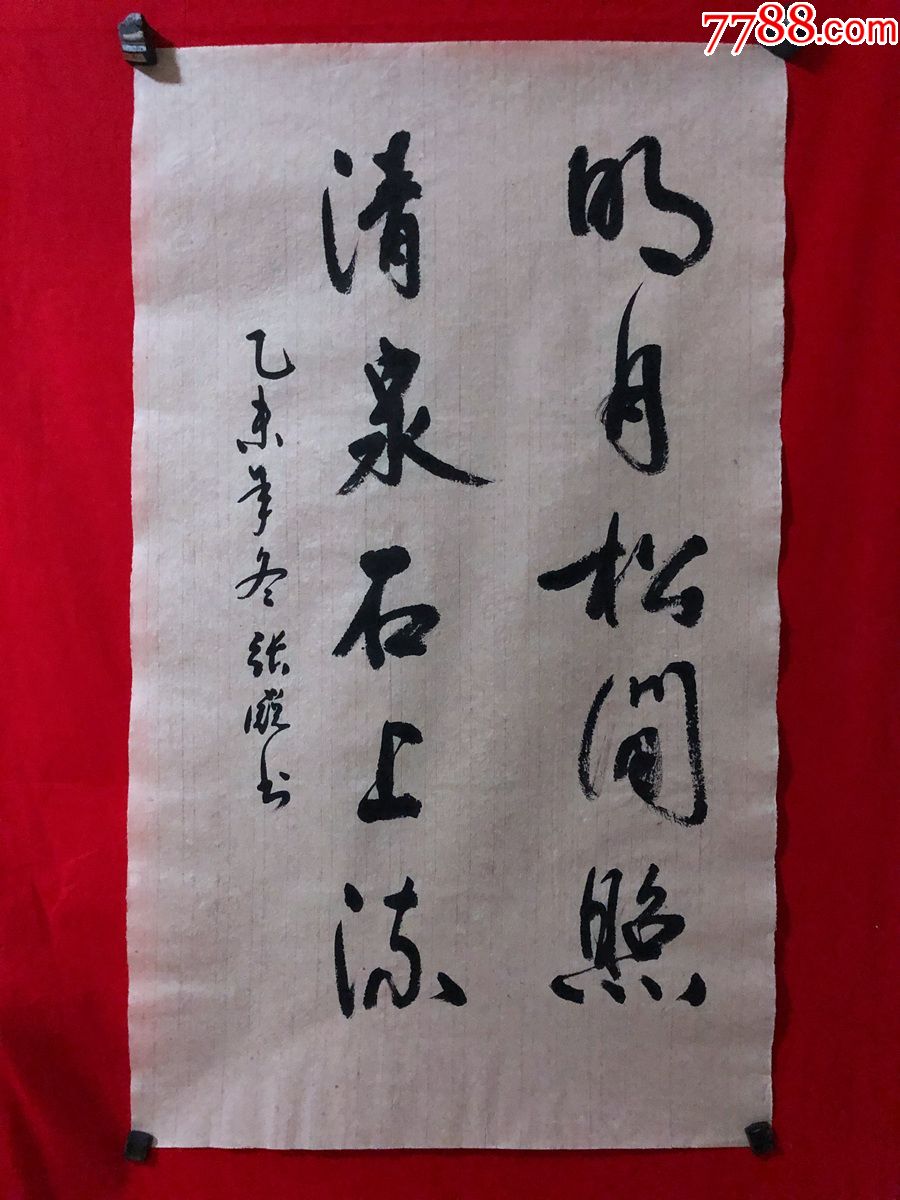 7788.com
明月松间照
清泉石上流
乙未年冬张书